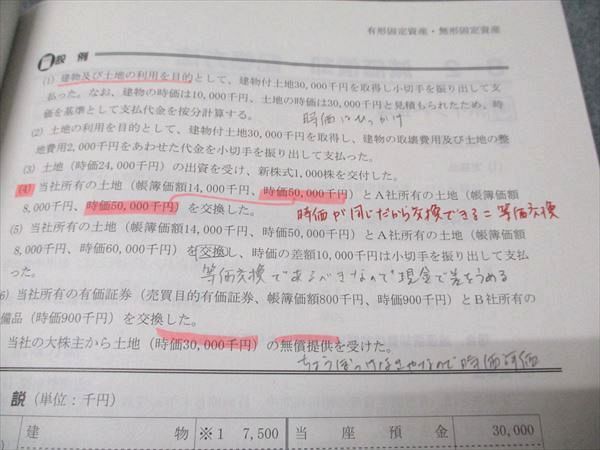 有形固定資産・無形固定資産
設 例
(1) 建物及び土地の利用を目的として、建物付土地30,000千円を取得し小切手を振り出して支
払った。なお、建物の時価は10,000千円、土地の時価は30,000千円と見積もられたため、時
価を基準として支払代金を按分計算する。
時価にひっかけ
(2) 土地の利用を目的として、建物付土地30,000千円を取得し、建物の取壊費用及び土地の整
地費用2,000千円をあわせた代金を小切手を振り出して支払った。
(3) 土地(時価24,000千円)の出資を受け、新株式1,000株を交付した。
(4) 当社所有の土地(帳簿価額14,000千円、時価50,000千円)とA社所有の土地(帳簿価額
8,000千円、時価50,000千円)を交換した。
時価が同じだから交換できる=等価交換
(5) 当社所有の土地(帳簿価額14,000千円、時価50,000千円)とA社所有の土地(帳簿価額
8,000千円、時価60,000千円)を交換し、時価の差額10,000千円は小切手を振り出して支払
った。
等価交換であるべきなので現金で差をうめる
6) 当社所有の有価証券(売買目的有価証券、帳簿価額800千円、時価900千円)とB社所有の
備品(時価900千円)を交換した。
当社の大株主から土地(時価30,000千円)の無償提供を受けた。
なので時価評価
説(単位:千円)
建 物 ※1 7,500 当 座 預 金 30,000